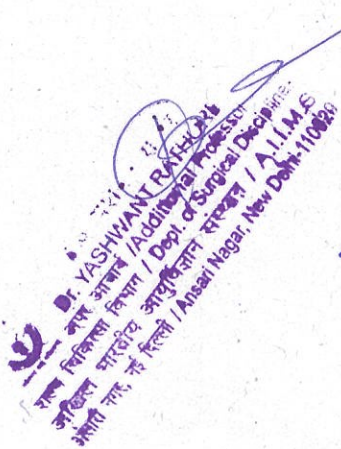 Dr. YASHWANT RATHORE
अपर आचार्य /Additional Professor
शल्य चिकित्सा विभाग / Dept. of Surgical Discipline
अखिल भारतीय आयुर्विज्ञान संस्थान / A.I.I.M.S
अंसारी नगर, नई दिल्ली / Ansari Nagar, New Delhi-110029